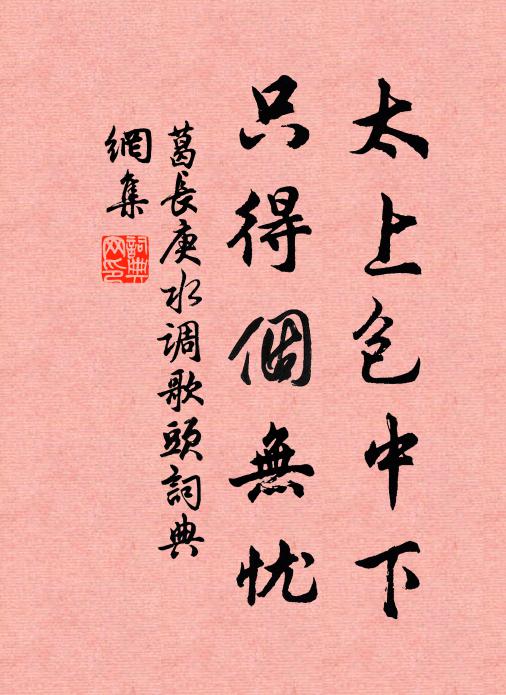 太上包中下
只得個無忧
葛長庚水调歌頭詞典
網集
詞典网印